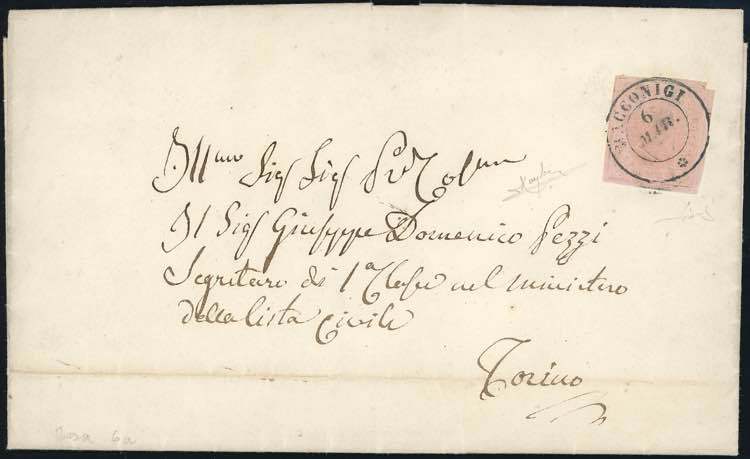 RACCONIGI
6
MAR.
Ill.mo Sig Sig P.ne Col.mo
Il Sig Giuseppe Domenico Pezzi
Segretaro di 1a Classe nel ministero
della lista Civile
Torino
Rosa 6a